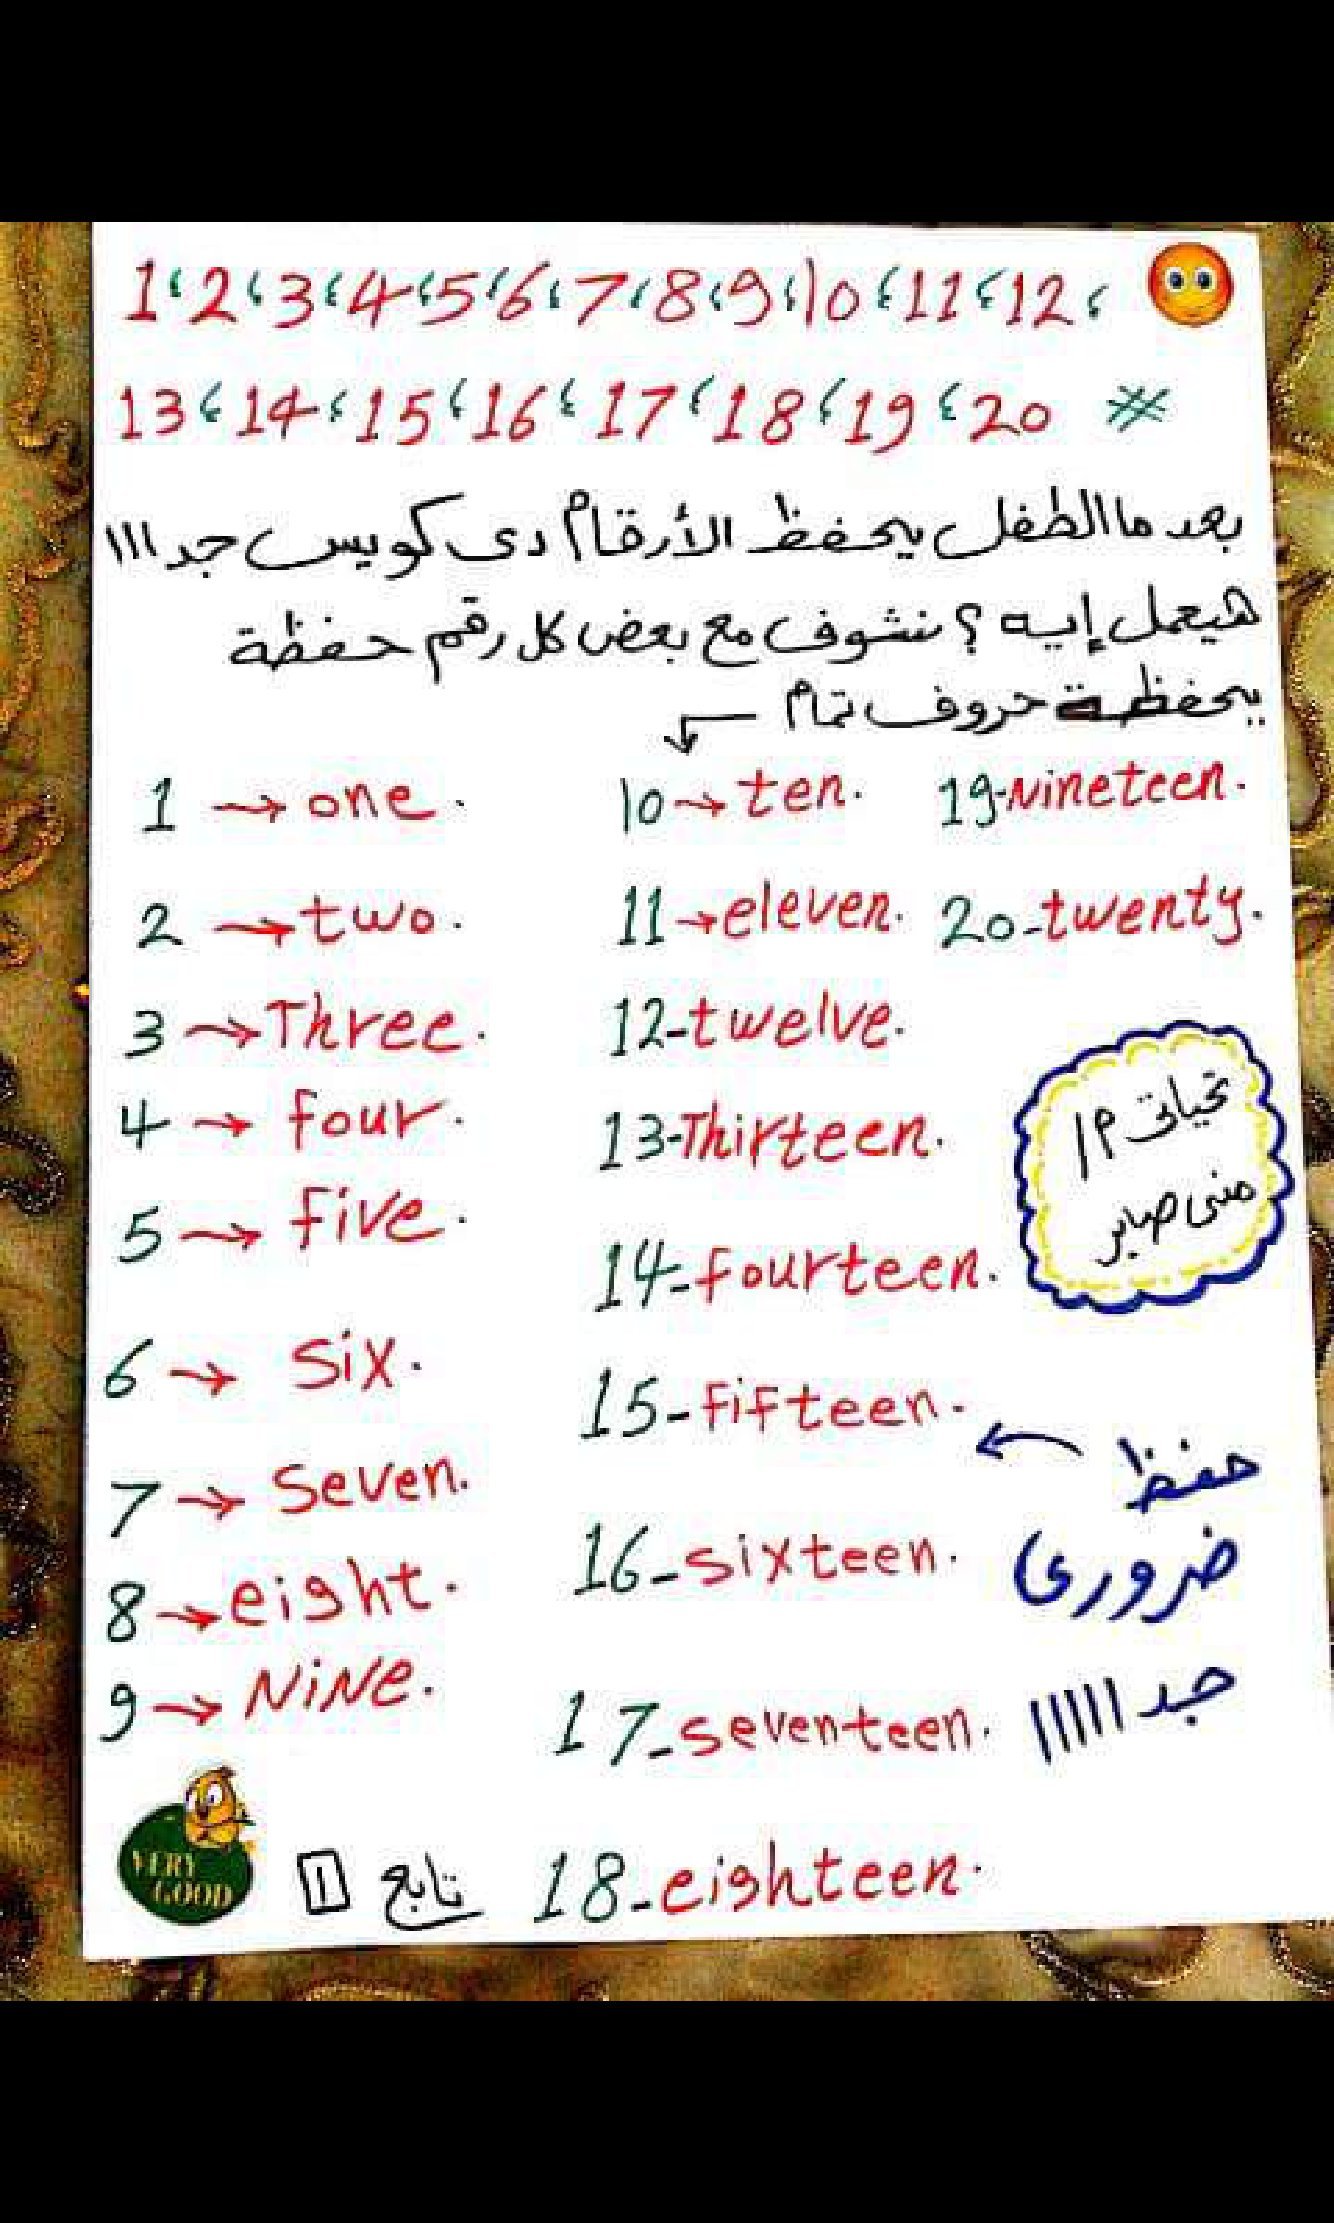 1، 2، 3، 4، 5، 6، 7، 8، 9، 10، 11، 12،
13، 14، 15، 16، 17، 18، 19، 20 #
بعد ما الطفل يحفظ الأرقام دى كويس جدااا
هيعمل إيه ؟ نشوف مع بعض كل رقم حفظة
يحفظة حروف تمام
1 → one.
2 → two.
3 → Three.
4 → four.
5 → five.
6 → six.
7 → seven.
8 → eight.
9 → NiNe.
10 → ten.
11 → eleven.
12-twelve.
13-Thirteen.
14-fourteen.
15-fifteen.
16-sixteen.
17-seventeen.
18-eighteen.
19-Nineteen.
20-twenty.
تحياتى م/
منى صابر
← حفظ
ضرورى
جدااااا
VERY
GOOD
تابع 1